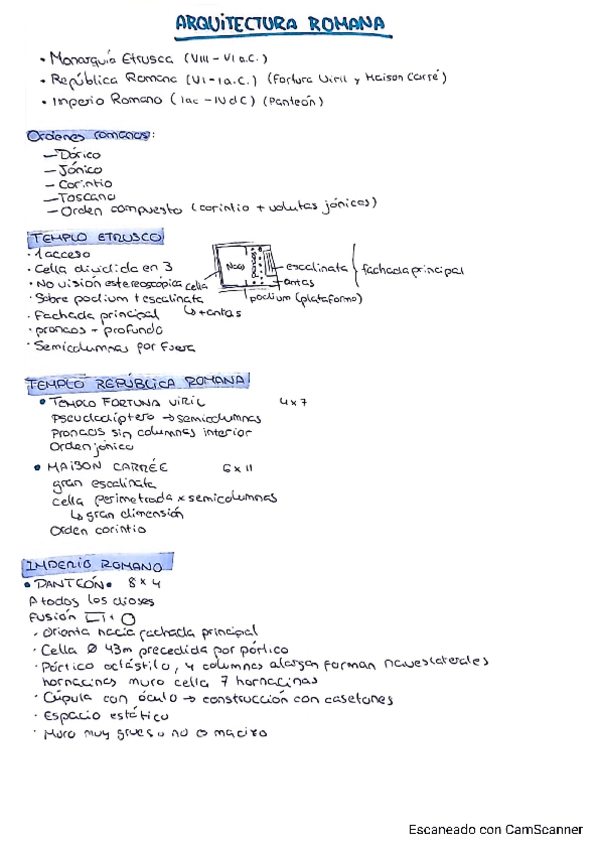 ARQUITECTURA ROMANA
• Monarquía Etrusca (VIII - VI a.C.)
• República Romana (VI - I a.C.) (Fortuna Viril y Maison Carré)
• Imperio Romano (I ac - IV d C) (Panteón)
Ordenes romanos:
— Dórico
— Jónico
— Corintio
— Toscano
— Orden compuesto (corintio + volutas jónicas)
TEMPLO ETRUSCO
· 1 acceso
· Cella dividida en 3
· No visión estereoscópica
· Sobre podium + escalinata
· Fachada principal
↳ + antas
· pronaos - profundo
· Semicolumnas por fuera
cella
Naos
escalinata
antas
podium (plataforma)
fachada principal
TEMPLO REPÚBLICA ROMANA
• TEMPLO FORTUNA VIRIL 4 x 7
Pseudodíptero → semicolumnas
Pronaos sin columnas interior
Orden jónico
• MAISON CARRÉE 6 x 11
gran escalinata
cella perimetrada x semicolumnas
↳ gran dimensión
Orden corintio
IMPERIO ROMANO
• PANTEÓN • 8 x 4
A todos los dioses
Fusión + O
· Orienta hacia fachada principal
· Cella Ø 43m precedida por pórtico
· Pórtico octástilo, 4 columnas alargan forman naves laterales
hornacinas muro cella 7 hornacinas
· Cúpula con óculo → construcción con casetones
· Espacio estático
· Muro muy grueso no macizo
Escaneado con CamScanner